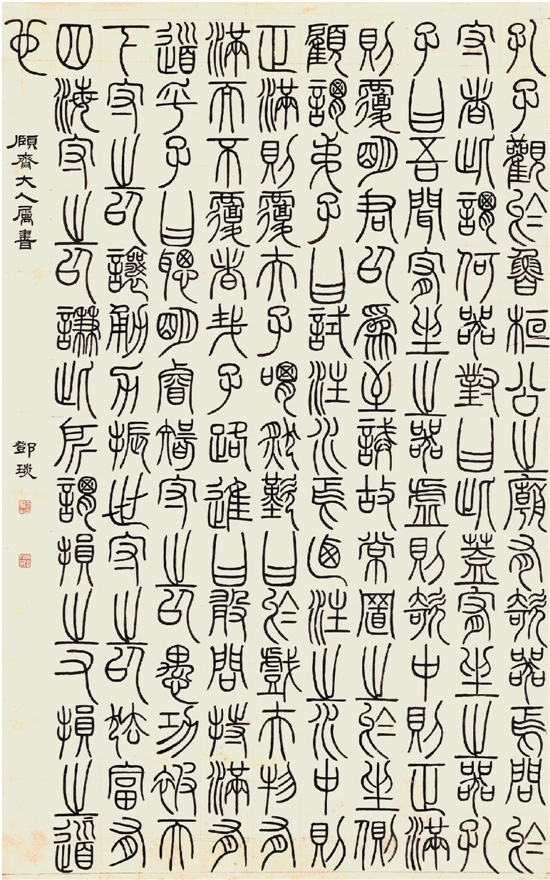 孔子觀於魯桓公之廟有欹器焉問於
守者此謂何器對曰此蓋宥坐之器孔
子曰吾聞宥坐之器虛則欹中則正滿
則覆明君以為至誡故常置之於坐側
顧謂弟子曰試注水焉乃注之水中則
正滿則覆夫子喟然歎曰於戲夫物有
滿而不覆者哉子路進曰敢問持滿有
道乎子曰聰明睿智守之以愚功被天
下守之以讓勇力振世守之以怯富有
四海守之以謙此所謂損之又損之道
也
頤齊大人屬書 鄧琰